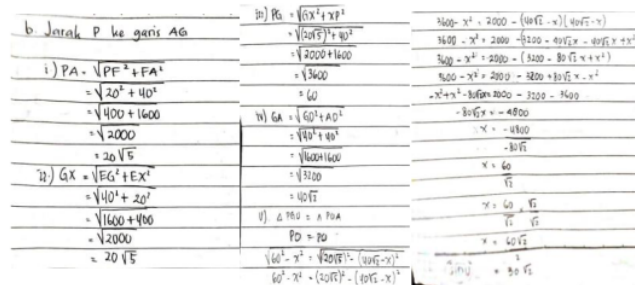 b. Jarak P ke garis AG
i) PA = √PF² + FA²
= √20² + 40²
= √400 + 1600
= √2000
= 20√5
ii) GX = √EG² + EX²
= √40² + 20²
= √1600 + 400
= √2000
= 20√5
iii) PG = √GX² + XP²
= √(20√5)² + 40²
= √2000 + 1600
= √3600
= 60
iv) GA = √GD² + AD²
= √40² + 40²
= √1600 + 1600
= √3200
= 40√2
v) △ PGO = △ POA
PO = PO
√60² - x² = √(20√5)² - (40√2 - x)²
60² - x² = (20√5)² - (40√2 - x)²
3600 - x² = 2000 - (40√2 - x)(40√2 - x)
3600 - x² = 2000 - (3200 - 40√2x - 40√2x + x²
3600 - x² = 2000 - (3200 - 80√2x + x²)
3600 - x² = 2000 - 3200 + 80√2x - x²
-x² + x² - 80√2x = 2000 - 3200 - 3600
-80√2x = -4800
x = -4800
-80√2
x = 60
√2
x = 60 . √2
√2 √2
x = 60√2
2
= 30√2